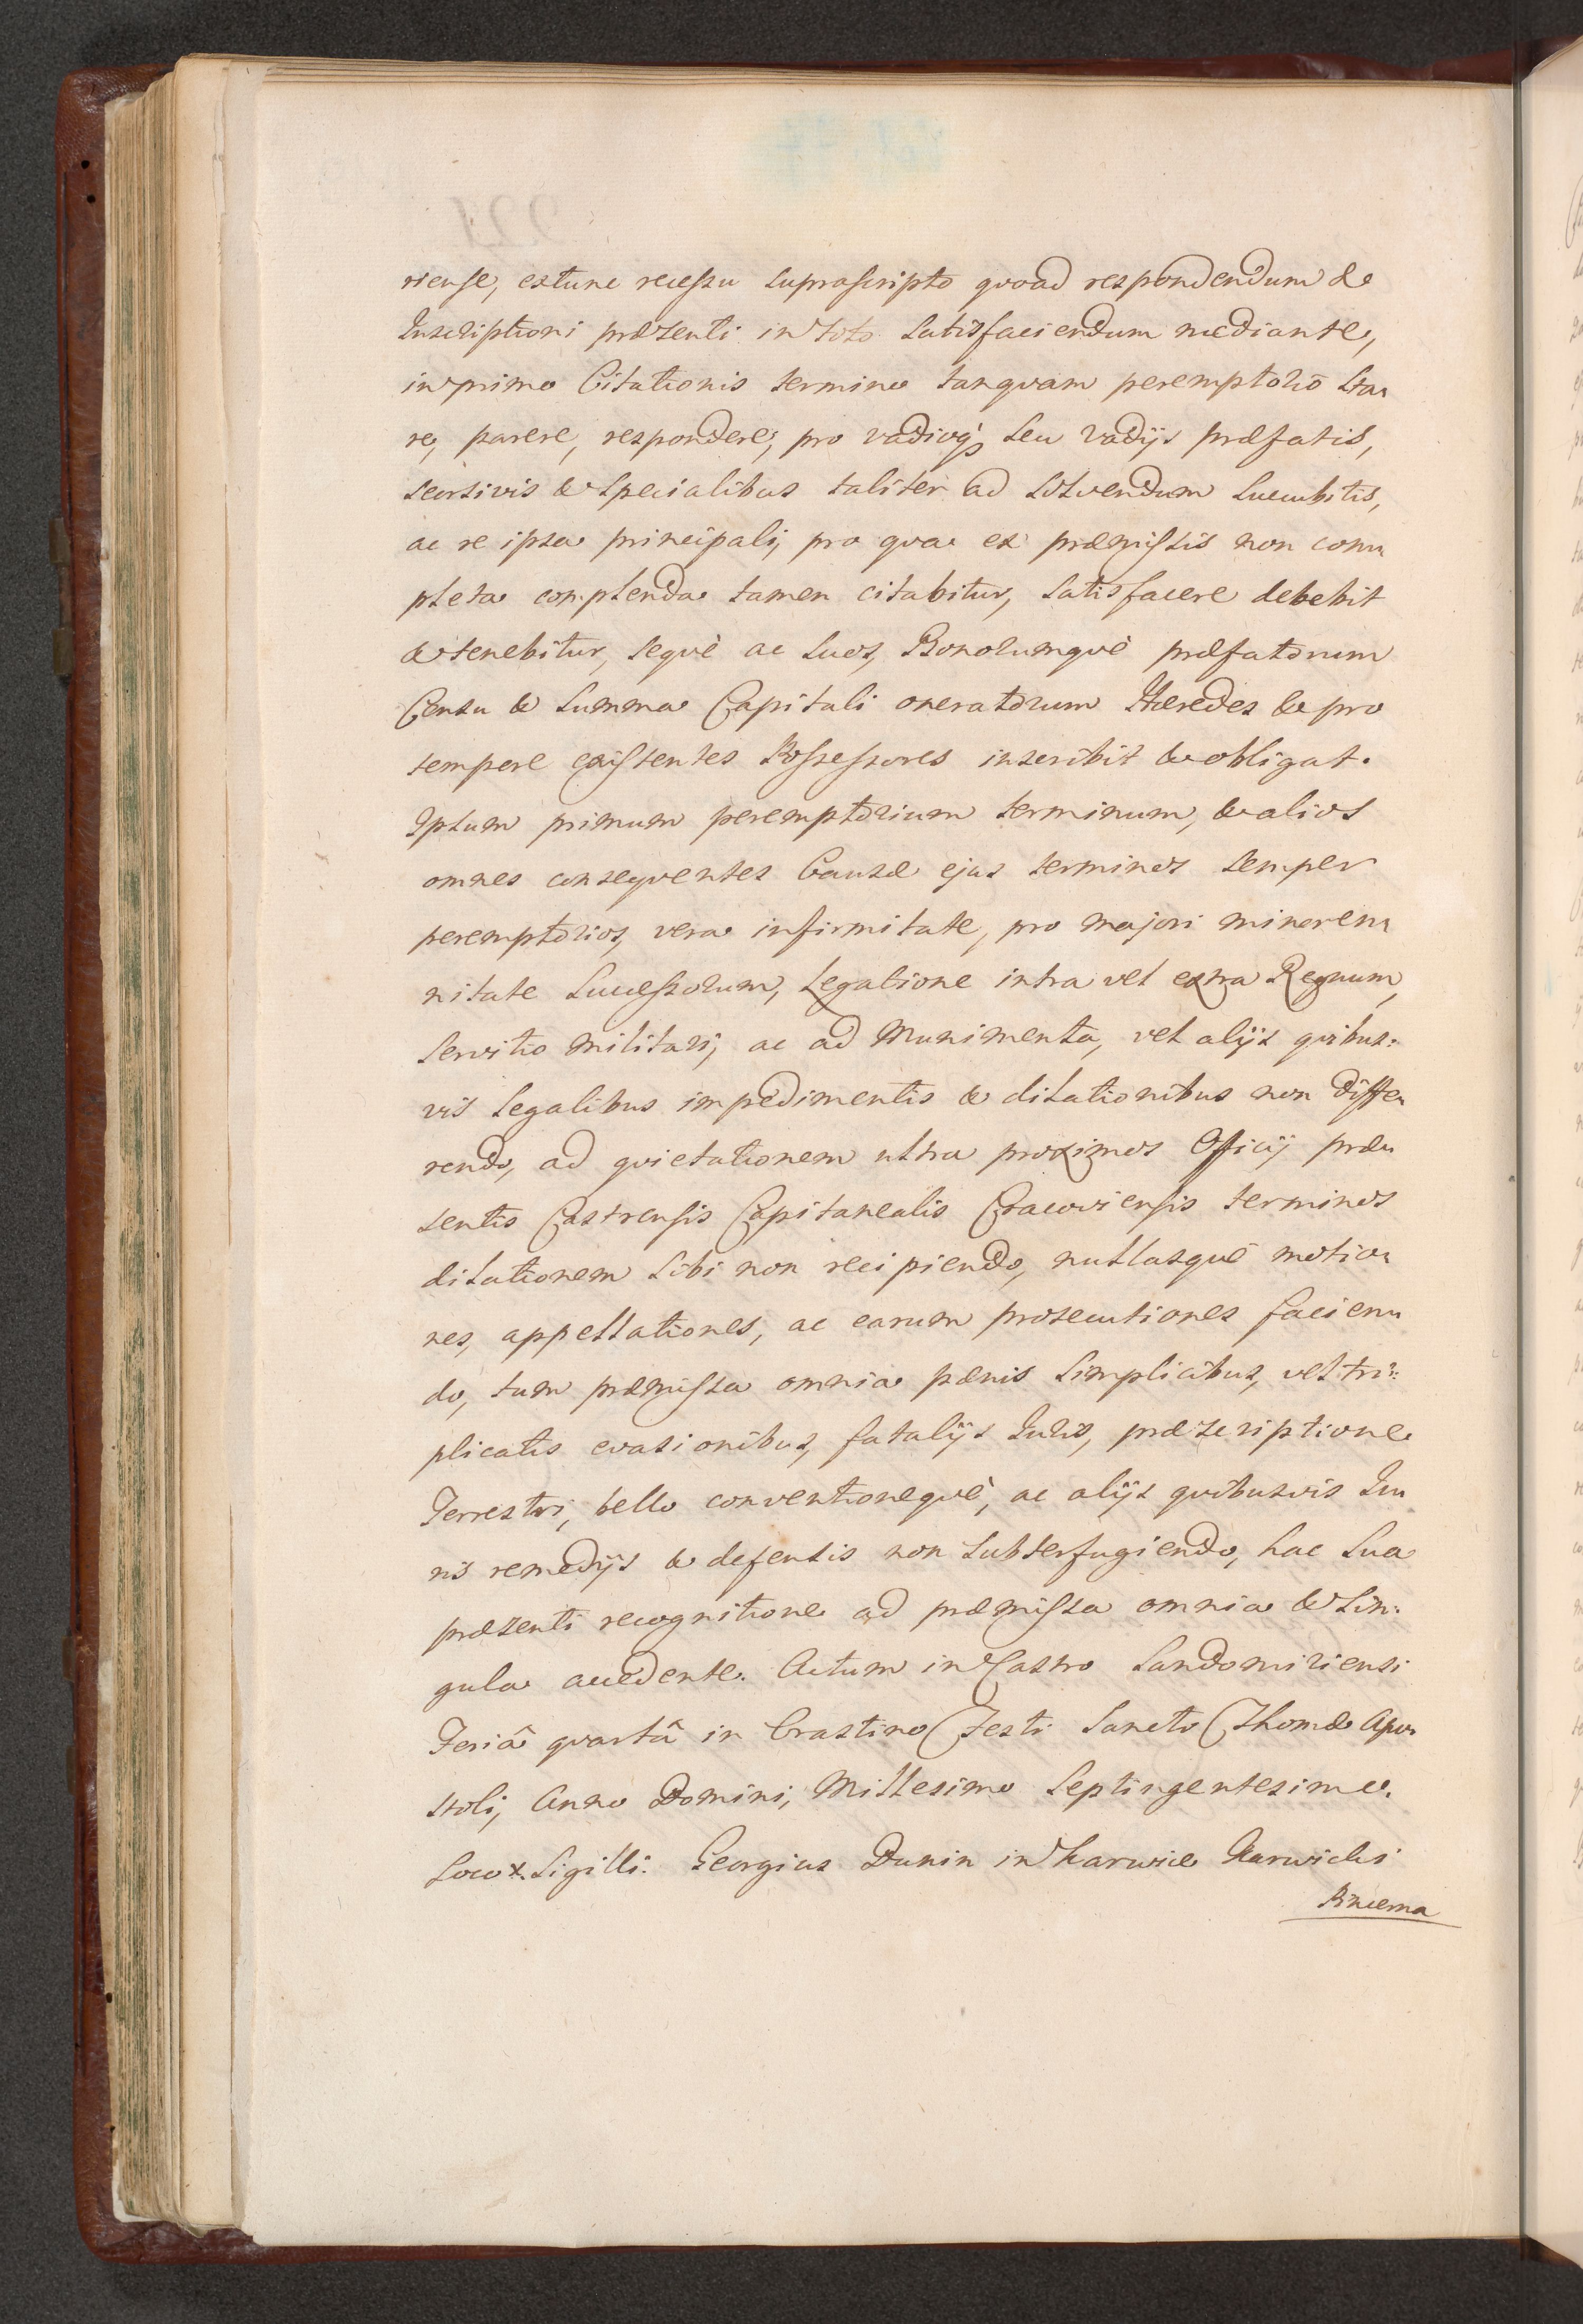 riense, extunc recessu suprascripto quoad respondendum &
Inscriptioni præsenti in toto satisfaciendum mediante,
in primo Citationis termino tanquam peremptorio sta=
re, parere, respondere, pro vadioq; seu vadijs præfatis,
seorsivis & specialibus taliter ad solvendum succubitis,
ac re ipsa principali, pro qua ex præmissis non com=
pleta complenda tamen citabitur, satisfacere debebit
& tenebitur, sequè ac suos, Bonorumquè præfatorum
Censu & Summa Capitali oneratorum Hæredes & pro
tempore existentes Possessores inscribit & obligat.
Ipsum primum peremptorium terminum, & alios
omnes consequentes Causæ ejus terminos semper
peremptorios, vera infirmitate, pro majori minoren=
nitate Successorum, Legatione intra vel extra Regnum,
servitio militari, ac ad Munimenta, vel alijs quibus=
vis legalibus impedimentis & dilationibus non diffe=
rendo, ad quietationem ultra proximos Officij præ=
sentis Castrensis Capitanealis Cracoviensis terminos
dilationem sibi non recipiendo, nullasquè motio=
nes, appellationes, ac earum prosecutiones facien=
do, tum præmissa omnia pænis simplicibus, vel tri=
plicatis evasionibus, fatalijs Iuris, præscriptione
Terrestri, bello conventionequè, ac alijs quibusvis Iu=
ris remedijs & defensis non subterfugiendo, hac sua
præsenti recognitione ad præmissa omnia & sin=
gula accedente. Actum in Castro Sandomiriensi
Feriâ quartâ in Crastino Festi Sancto Thomæ Apo=
stoli, Anno Domini, Millesimo Septingentesimo.
Loco x. Sigilli. Georgius Dunin in Karwice Karwicki
Pincerna
221